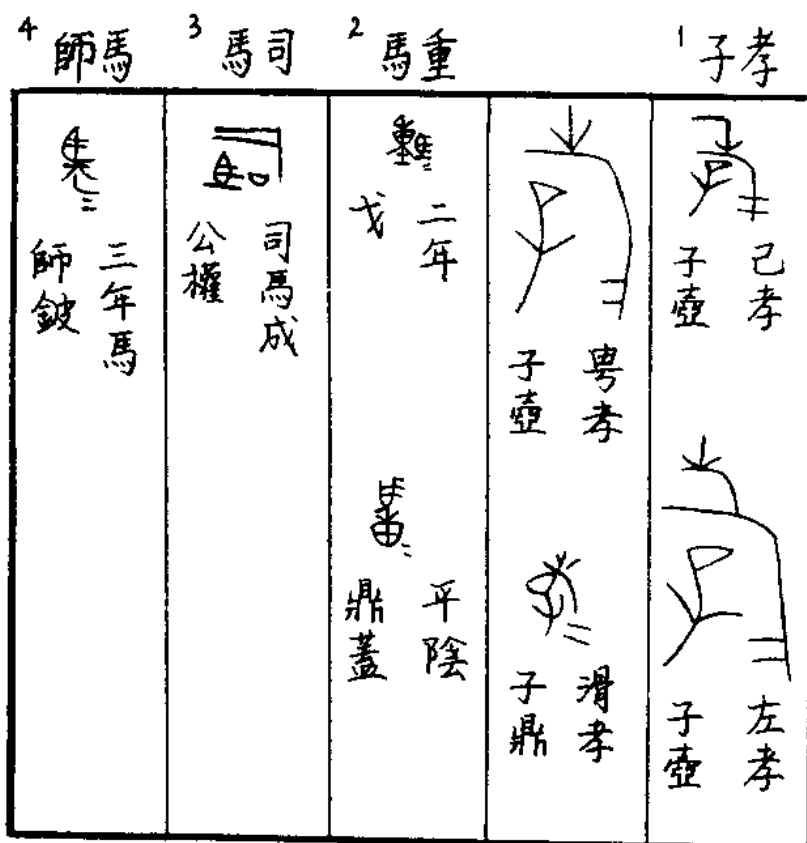 1 孝子
己孝
子壺
左孝
子壺
甹孝
子壺
滑孝
子鼎
2 重馬
二年
戈
平陰
鼎蓋
3 司馬
司馬成
公權
4 馬師
三年馬
師鈹